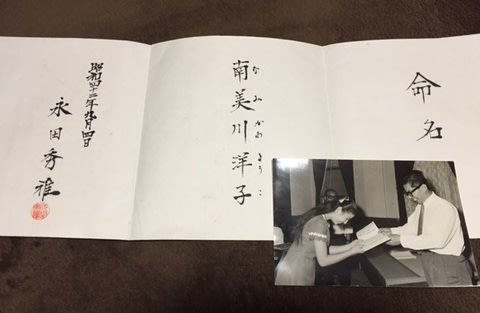 命名
南美川洋子
なみかわようこ
昭和四十二年九月四日
永田秀雅